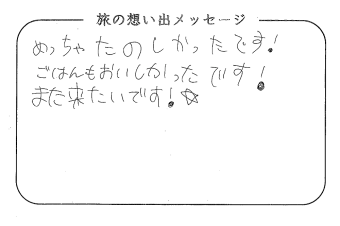 旅の想い出メッセージ
めっちゃたのしかったです!
ごはんもおいしかったです!
また来たいです!☆